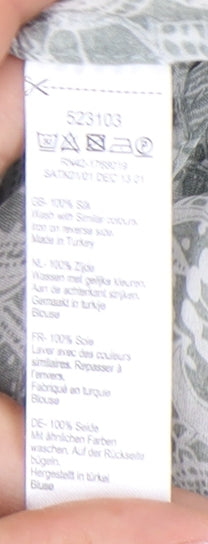 523103
GB- 100% Silk
Wash with Similar colours.
Iron on reverse side.
Made in Turkey
NL- 100% Zijde
Wassen met gelijke kleuren.
Aan de achterkant strijken.
Gemaakt in turkije
Blouse
FR- 100% Soie
Laver avec des couleurs
similaires. Repasser à
l'envers.
Fabriqué en turquie
Blouse
DE- 100% Seide
Mit ähnlichen Farben
waschen. Auf der Rückseite
bügeln.
Hergestellt in türkei
Bluse